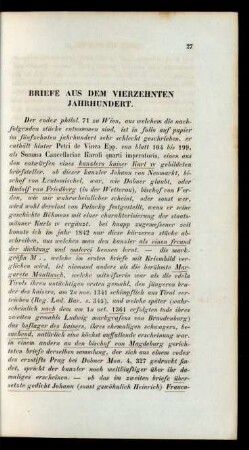 27
BRIEFE AUS DEM VIERZEHNTEN
JAHRHUNDERT.
Der codex philol. 71 zu Wien, aus welchem die nach-
folgenden stücke entnommen sind, ist in folio auf papier
im funfzehnten jahrhundert sehr schlecht geschrieben. er
enthält hinter Petri de Vinea Epp. von blatt 104 bis 199,
als Summa Cancellariae Karoli quarti imperatoris, einen aus
den entwürfen eines kanzlers kaiser Karl IV gebildeten
briefsteller. ob dieser kanzler Johann von Neumarkt, bi-
schof von Leutomischel, war, wie Dobner glaubt, oder
Rudolf von Friedberg (in der Wetterau), bischof von Ver-
den, wie mir wahrscheinlicher scheint, oder sonst wer,
wird wohl dereinst von Palacky festgestellt, wenn er seine
geschichte Böhmens mit einer charakterisierung der staats-
männer Karls IV ergänzt. bei knapp zugemessener zeit
konnte ich im jahr 1842 nur diese kürzeren stücke ab-
schreiben, aus welchen man den kanzler als einen freund
der dichtung und malerei kennen lernt. — die mark-
gräfin M .., welche im ersten briefe mit Kriemhild ver-
glichen wird, ist niemand anders als die berühmte Mar-
garete Maultasch, welche mitleidsvoll
Tirols ihren untüchtigen ersten gemahl, den jüngeren bru-
der des kaisers, am 2n nov. 1341 schimpflich aus Tirol ver-
trieben (Reg. Lud. Bav. s. 345), und welche später (wahr-
scheinlich nach dem am 1n oct. 1361 erfolgten tode ihres
zweiten gemahls Ludwig markgrafen von Brandenburg)
das hoflager des kaisers, ihres ehemaligen schwagers, be-
suchend, natürlich eine höchst auffallende erscheinung war.
in einem andern an den bischof von Magdeburg gerich-
teten briefe derselben sammlung, der sich aus einem codex
des erzstifts Prag bei Dobner Mon. 4, 327 gedruckt fin-
det, spricht der kanzler noch weitläuftiger über ihr da-
maliges erscheinen. — ob das im zweiten briefe über-
setzte gedicht Johann (sonst gewöhnlich Heinrich) Frauen-